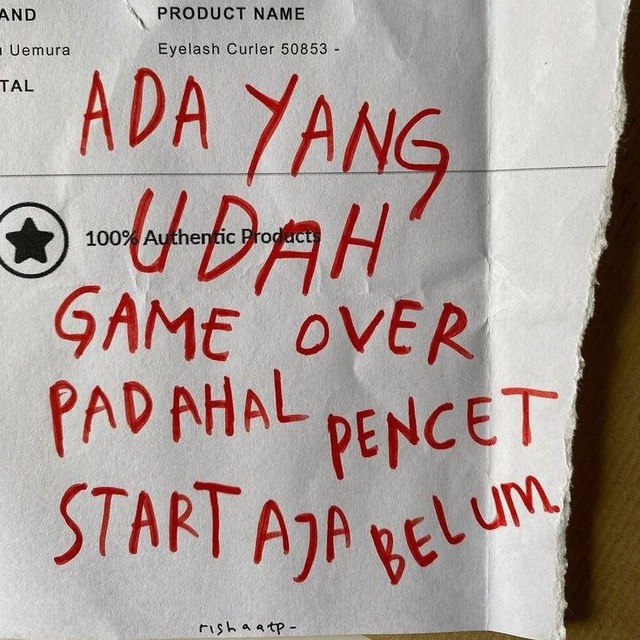 AND PRODUCT NAME
Uemura Eyelash Curler 50853 -
TAL
ADA YANG
UDAH
100% Authentic Products
GAME OVER
PADAHAL PENCET
START AJA BELUM
rishaatp-